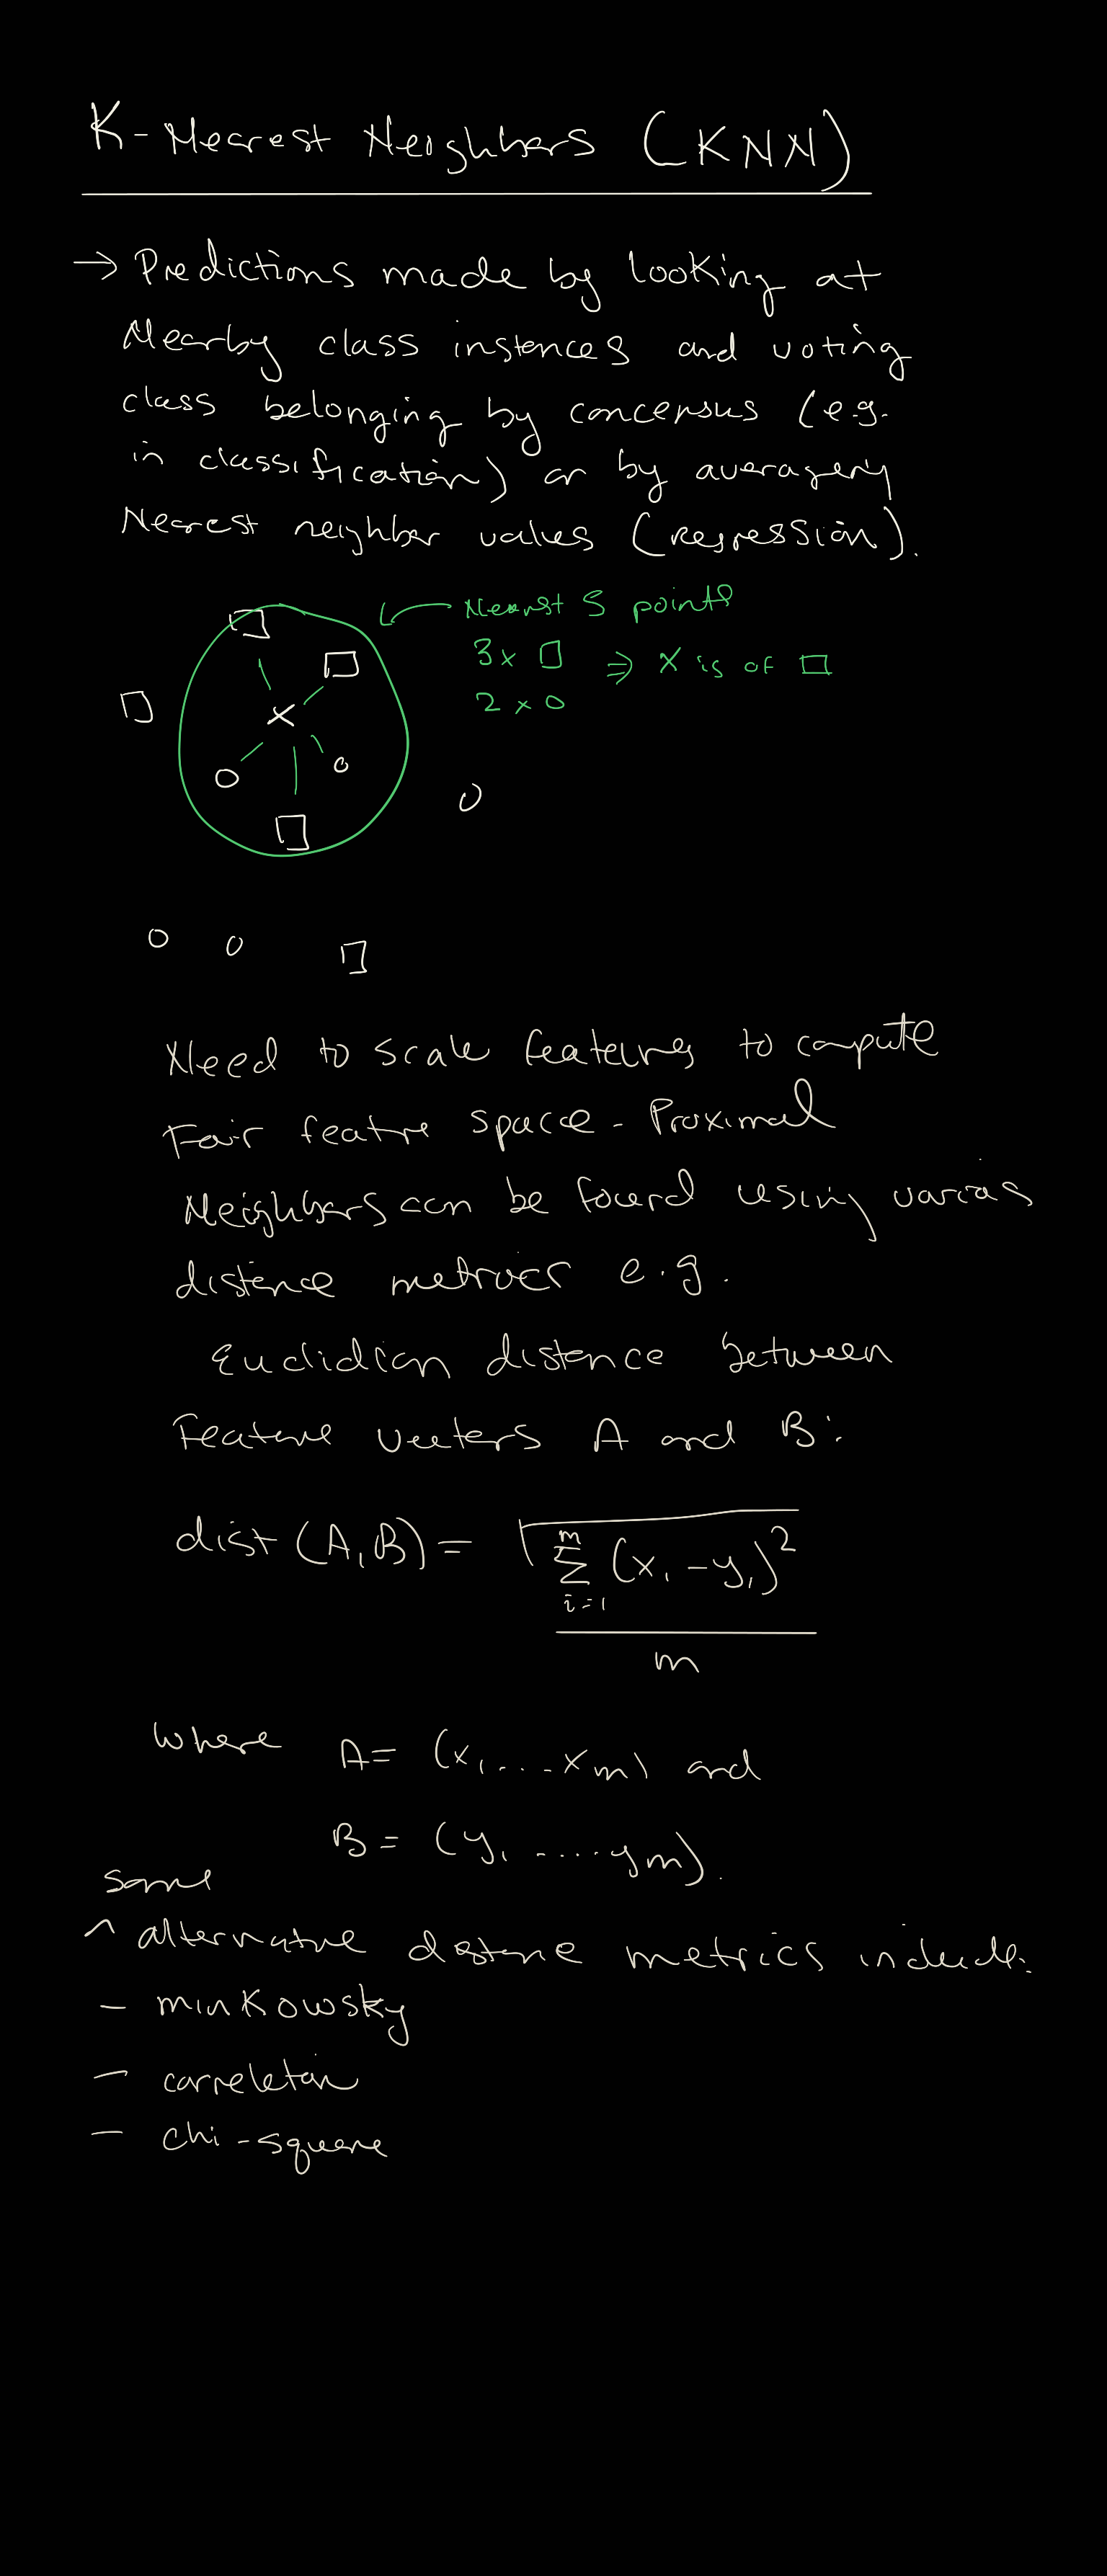 K-Nearest Neighbors (KNN)
→ Predictions made by looking at
Nearby class instances and voting
class belonging by concensus (e.g.
in classification) or by averaging
Nearest neighbor values (regression).
Nearest 5 points
3 x □ ⇒ X is of □
2 x O
Need to scale features to compute
Fair feature space - Proximal
Neighbors can be found using various
distance metrics e.g.
Euclidian distance between
Feature vectors A and B:
dist (A,B) = √ m Σ i=1 (x₁ - y₁)²
m
where A = (x₁ ... xm) and
B = (y₁ .... ym).
some
^ alternative distance metrics include:
- minkowsky
- correlation
- chi-square